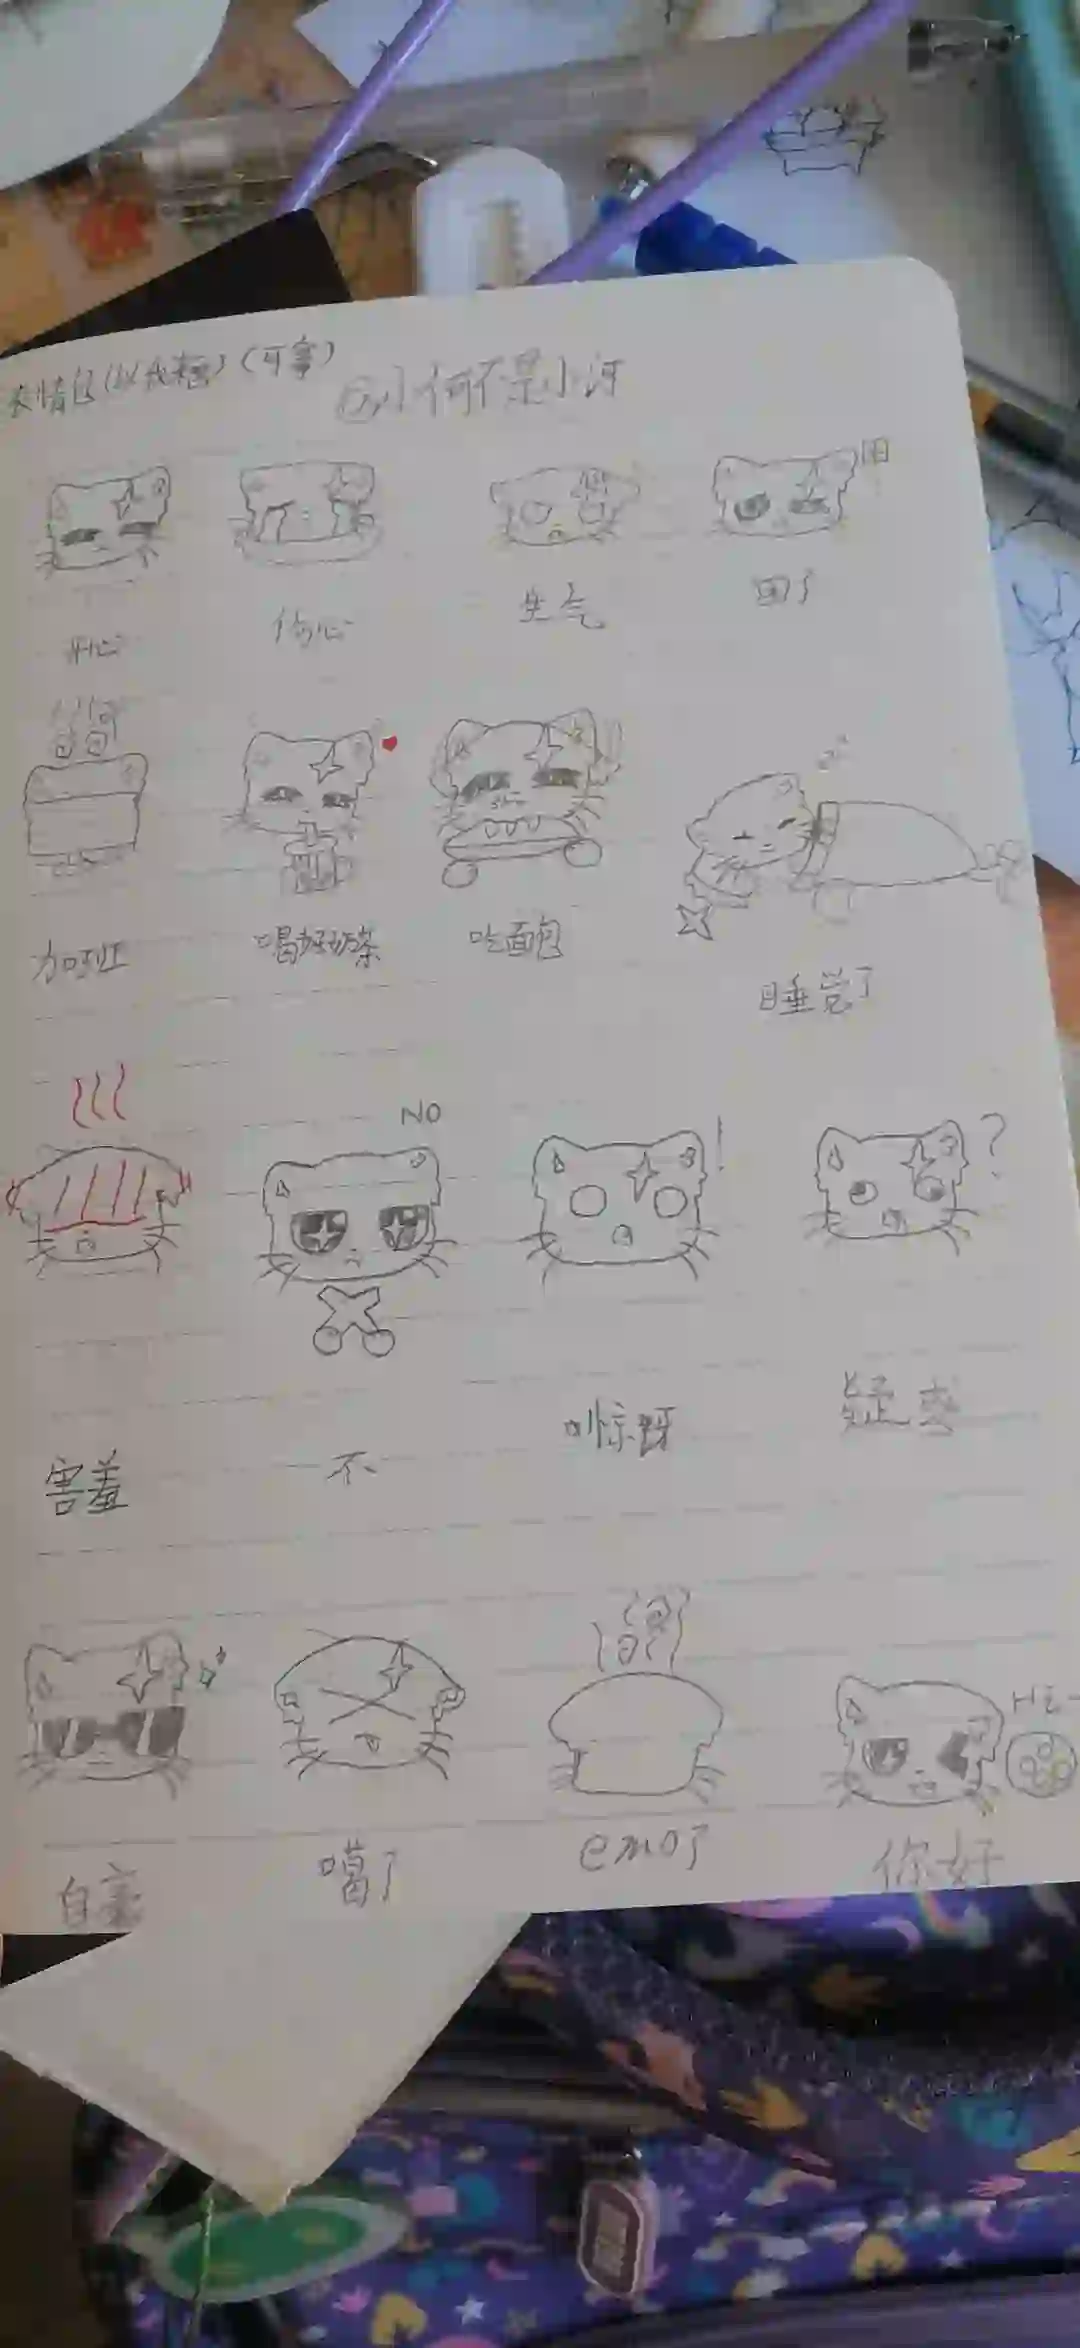 表情包(以我来画)(可拿)
@小何不是小河
开心 伤心 生气 困了
困
加班 喝奶茶 吃面包 睡觉了
NO ! ?
害羞 不 惊讶 疑惑
Hi~
自豪 噶了 emo了 你好